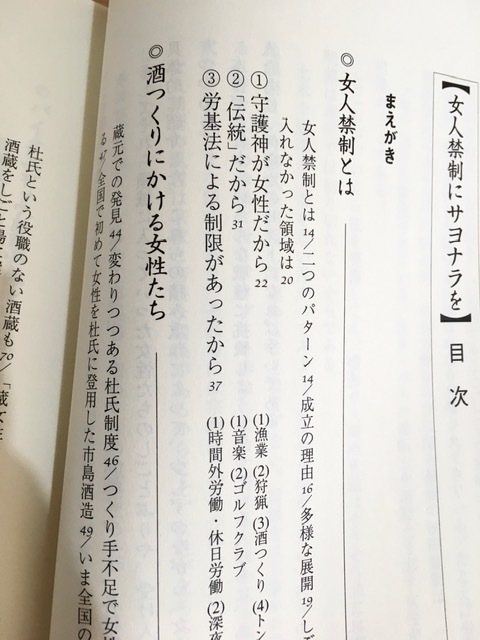 【女人禁制にサヨナラを】目次
まえがき
◎女人禁制とは
女人禁制とは 14／二つのパターン 14／成立の理由 16／多様な展開 19／しご
入れなかった領域は 20
① 守護神が女性だから 22 (1)漁業 (2)狩猟 (3)酒つくり (4)トン
② 「伝統」だから 31 (1)音楽 (2)ゴルフクラブ
③ 労基法による制限があったから 37 (1)時間外労働・休日労働 (2)深夜
◎酒つくりにかける女性たち
蔵元での発見 44／変わりつつある杜氏制度 46／つくり手不足で女性
る 47／全国で初めて女性を杜氏に登用した市島酒造 49／いま全国の
杜氏という役職のない酒蔵も 70／「蔵女性
酒蔵をしごと場に